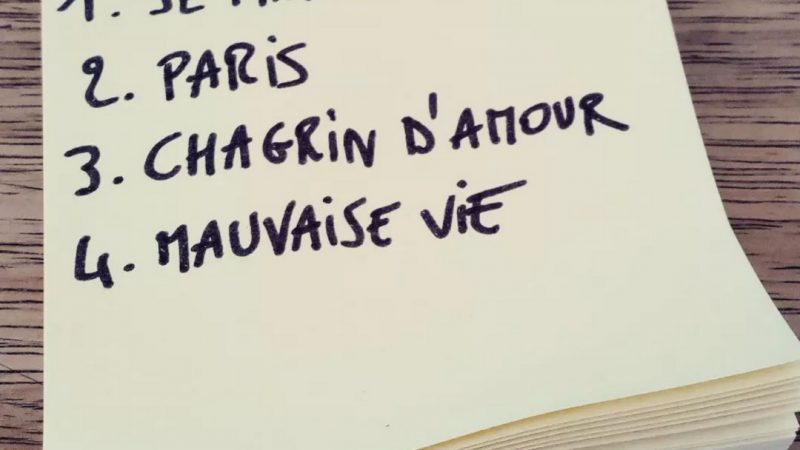 2. PARiS
3. CHAGRiN D'AMOUR
4. MAUVAiSE ViE